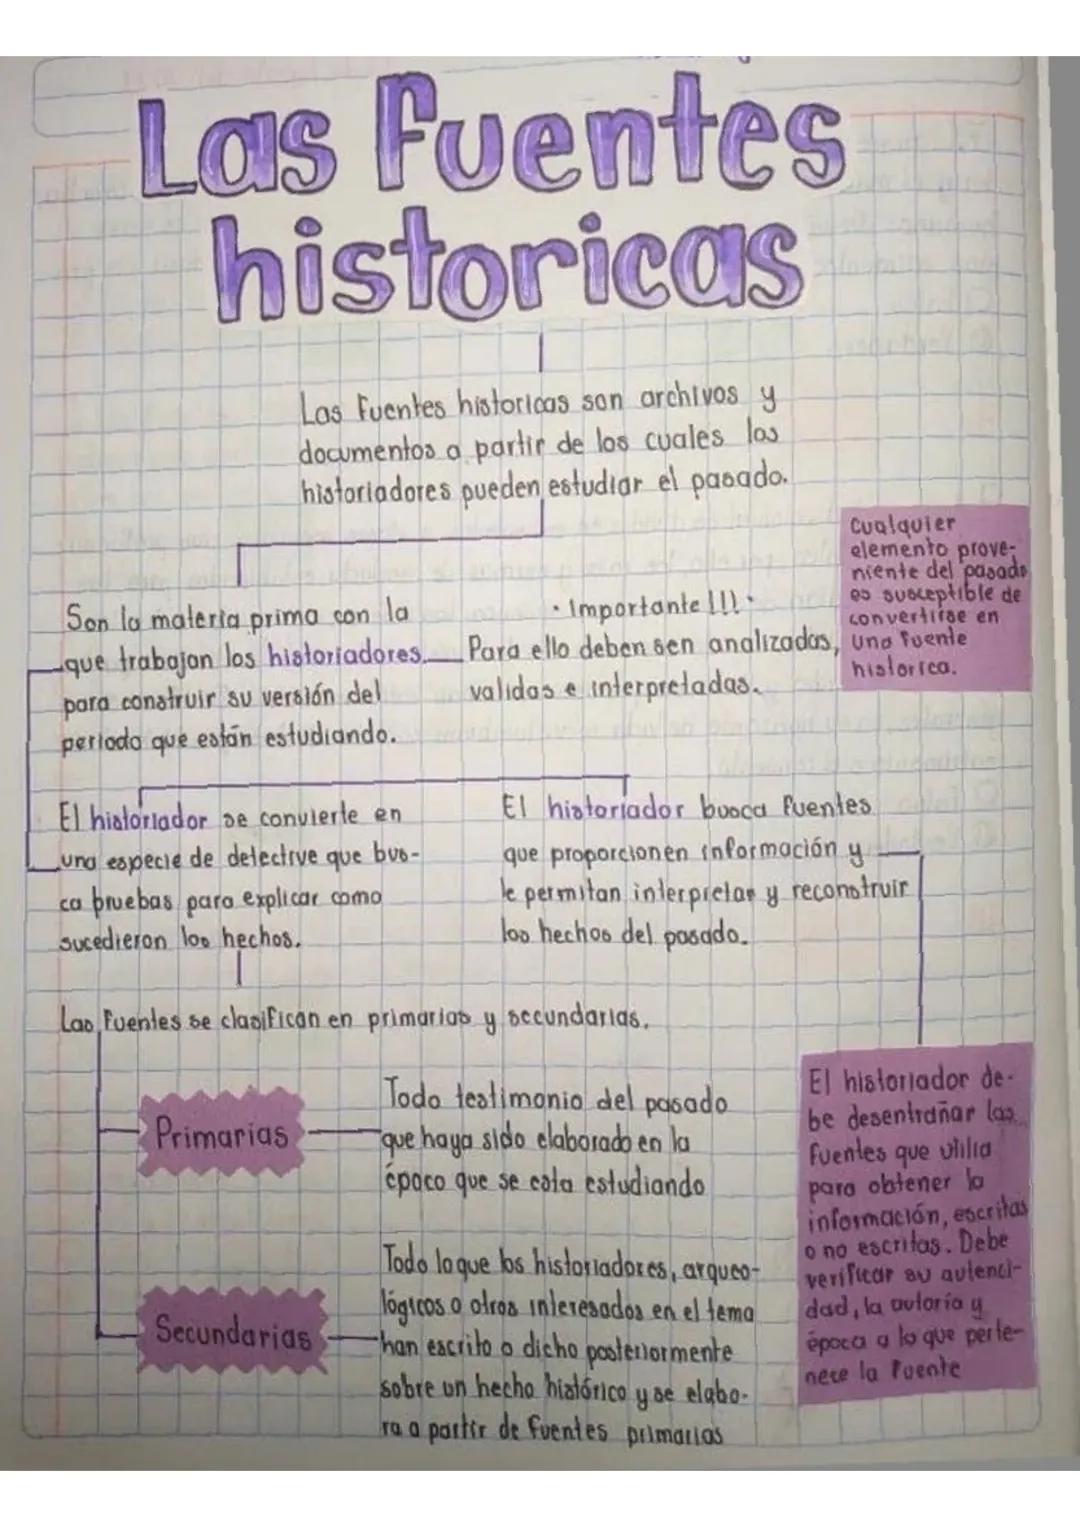 Las fuentes
historicas
Las Fuentes historicas son archivos y
documentos a partir de los cuales los
historiadores pueden estudiar el pasado.
Cualquier
elemento prove-
niente del pasado
es susceptible de
convertirse en
una fuente
historica.
Son la materia prima con la
que trabajan los historiadores
para construir su versión del
periodo que están estudiando.
• Importante!!! •
Para ello deben sen analizadas,
validas e interpretadas.
El historiador se convierte en
una especie de detective que bus-
ca pruebas para explicar como
sucedieron los hechos.
El historiador busca fuentes
que proporcionen información y
le permitan interpretar y reconstruir
los hechos del pasado.
Las Fuentes se clasifican en primarias y secundarias.
Primarias
Todo testimonio del pasado
que haya sido elaborado en la
época que se esta estudiando
Secundarias
Todo lo que los historiadores, arqueo-
lógicos o otros interesados en el tema
han escrito o dicho posteriormente
sobre un hecho histórico y se elabo-
ra a partir de fuentes primarias
El historiador de-
be desentrañar las
fuentes que utilia
para obtener la
información, escritas
o no escritas. Debe
verificar su autenci-
dad, la autoría y
época a lo que perte-
nece la fuente